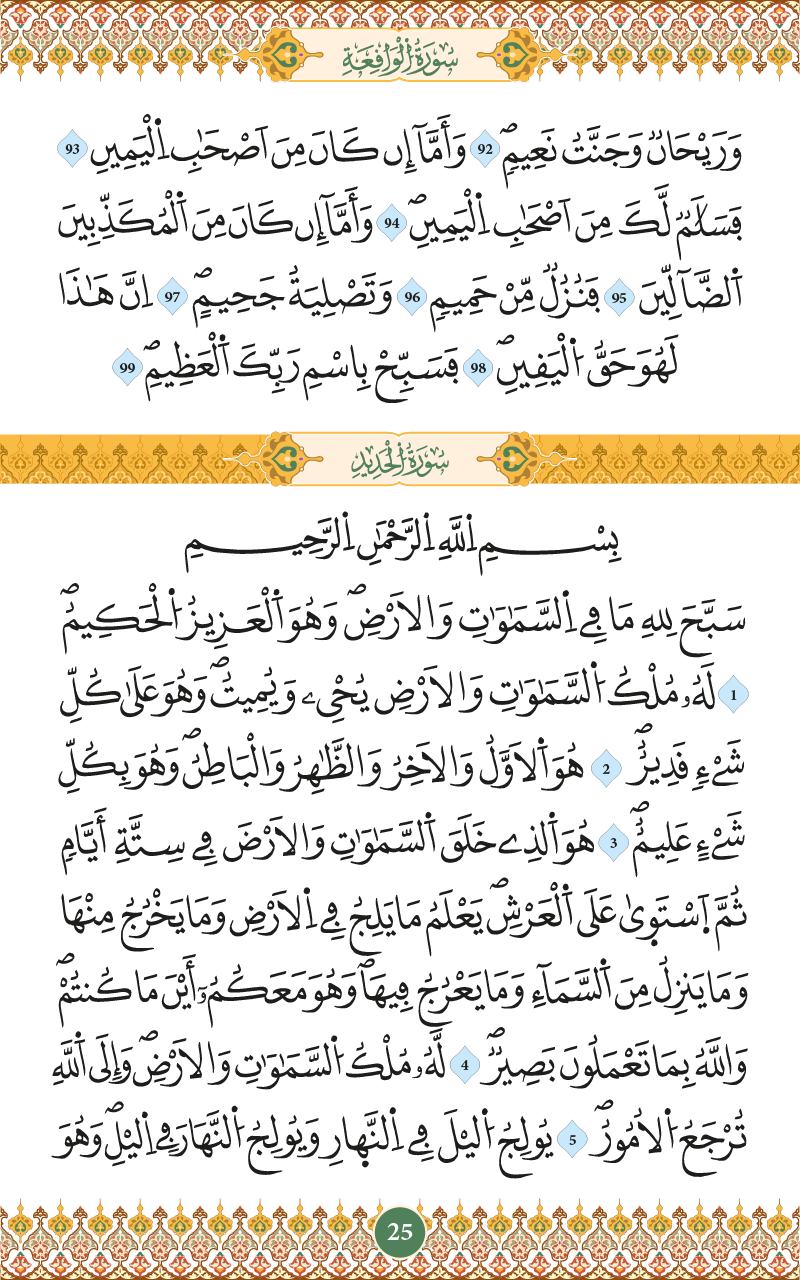 سُورَةُ الْوَاقِعَةِ
وَرَيْحَانٌ وَجَنَّتُ نَعِيمٍ 92 وَأَمَّآ إِن كَانَ مِنَ اَصْحَٰبِ اِ۬لْيَمِينِ 93
فَسَلَٰمٌ لَّكَ مِنَ اَصْحَٰبِ اِ۬لْيَمِينِ 94 وَأَمَّآ إِن كَانَ مِنَ اَ۬لْمُكَذِّبِينَ
اَ۬لضَّآلِّينَ 95 فَنُزُلٌ مِّنْ حَمِيمٍ 96 وَتَصْلِيَةُ جَحِيمٍ 97 اِنَّ هَٰذَا
لَهُوَ حَقُّ اُ۬لْيَقِينِ 98 فَسَبِّحْ بِاسْمِ رَبِّكَ اَ۬لْعَظِيمِ 99
سُورَةُ الْحَدِيدِ
بِسْمِ اِ۬للَّهِ اِ۬لرَّحْمَٰنِ اِ۬لرَّحِيمِ
سَبَّحَ لِلهِ مَا فِے اِ۬لسَّمَٰوَٰتِ وَالَارْضِ وَهُوَ اَ۬لْعَزِيزُ اُ۬لْحَكِيمُ
1 لَهُۥ مُلْكُ اُ۬لسَّمَٰوَٰتِ وَالَارْضِ يُحْيِۦ وَيُمِيتُ وَهُوَ عَلَىٰ كُلِّ
شَےْءٖ قَدِيرٌ 2 هُوَ اَ۬لَاوَّلُ وَالَاخِرُ وَالظَّٰهِرُ وَالْبَاطِنُ وَهُوَ بِكُلِّ
شَےْءٍ عَلِيمٌ 3 هُوَ اَ۬لذِے خَلَقَ اَ۬لسَّمَٰوَٰتِ وَالَارْضَ فِے سِتَّةِ أَيَّامٖ
ثُمَّ اَ۪سْتَوٜىٰ عَلَى اَ۬لْعَرْشِ يَعْلَمُ مَا يَلِجُ فِے اِ۬لَارْضِ وَمَا يَخْرُجُ مِنْهَا
وَمَا يَنزِلُ مِنَ اَ۬لسَّمَآءِ وَمَا يَعْرُجُ فِيهَا وَهُوَ مَعَكُمُۥٓ أَيْنَ مَا كُنتُمْ
وَاللَّهُ بِمَا تَعْمَلُونَ بَصِيرٌ 4 لَّهُۥ مُلْكُ اُ۬لسَّمَٰوَٰتِ وَالَارْضِ وَإِلَى اَ۬للَّهِ
تُرْجَعُ اُ۬لُامُورُ 5 يُولِجُ اُ۬ليْلَ فِے اِ۬لنَّهٜارِ وَيُولِجُ اُ۬لنَّهَارَ فِے اِ۬ليْلِ وَهُوَ
25